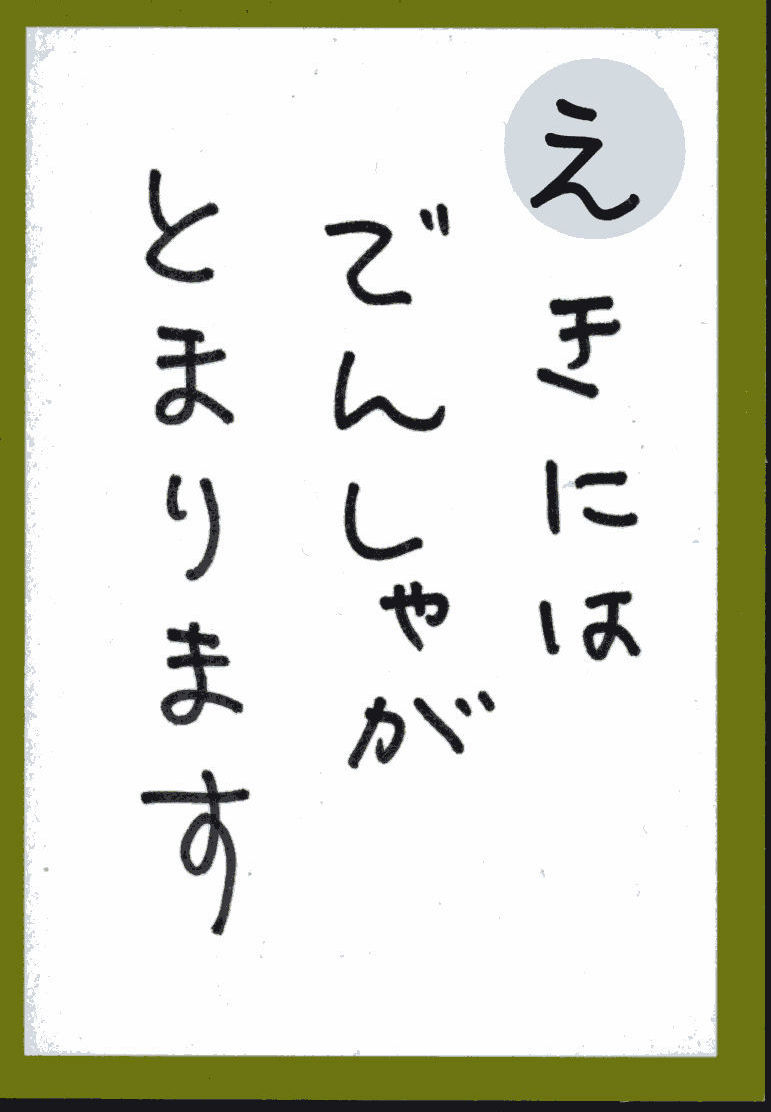 えきには
でんしゃが
とまります